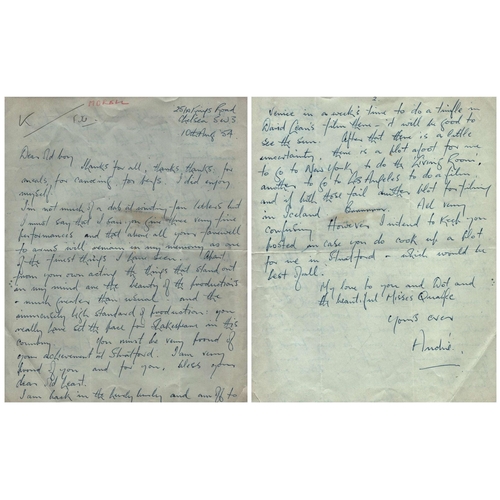 MORELL
251a Kings Road
Chelsea S.W.3
10th Aug '54
Dear Old boy
Thanks for all, thanks, thanks, for
meals, for canoeing, for beds. I did enjoy
myself.
I'm not much of a dab at writing fan letters but
I must say that I saw you give three very fine
performances and that above all your farewell
to arms will remain in my memory as one
of the finest things I have seen. Apart
from your own acting the things that stand out
in my mind are the beauty of the productions
- much greater than usual - and the
immensely high standard of production: you
really have set the pace for Shakespeare in this
country. You must be very proud of
your achievement at Stratford. I am very
proud of you and for you, bless your
dear old heart.
I am back in the hurly burly and am off to
2
Venice in a week's time to do a trifle in
David Lean's film there - it'll be good to
see the sun. After that there is a little
uncertainty. there is a plot afoot for me
to go to New York to do The Living Room,
another to go to Los Angeles to do a film
and if both these fail another plot for filming
in Iceland. All very
confusing. However I intend to keep you
posted in case you do cook up a plot
for me in Stratford - which would be
best of all.
My love to you and Dot and
the beautiful Misses Quayle
Yours ever
André.